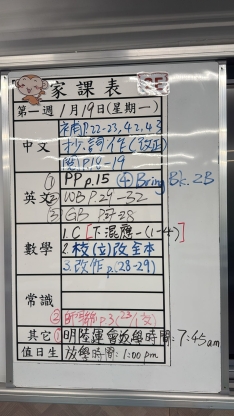 家課表
第一週 1月19日(星期一)
中文
補P.22-23,42,43
抄詞作(改正)
P.18-19
英文
① PP p.15 ④ Bring Bk. 2B
② WB P.29-32
③ GB P.27-28
數學
1.C [下混應-(1-4)]
2.枝(立)改全本
3.改作p.28-29)
常識
其它
① 明陸運會放學時間:7:45am
值日生
放學時間:1:00pm